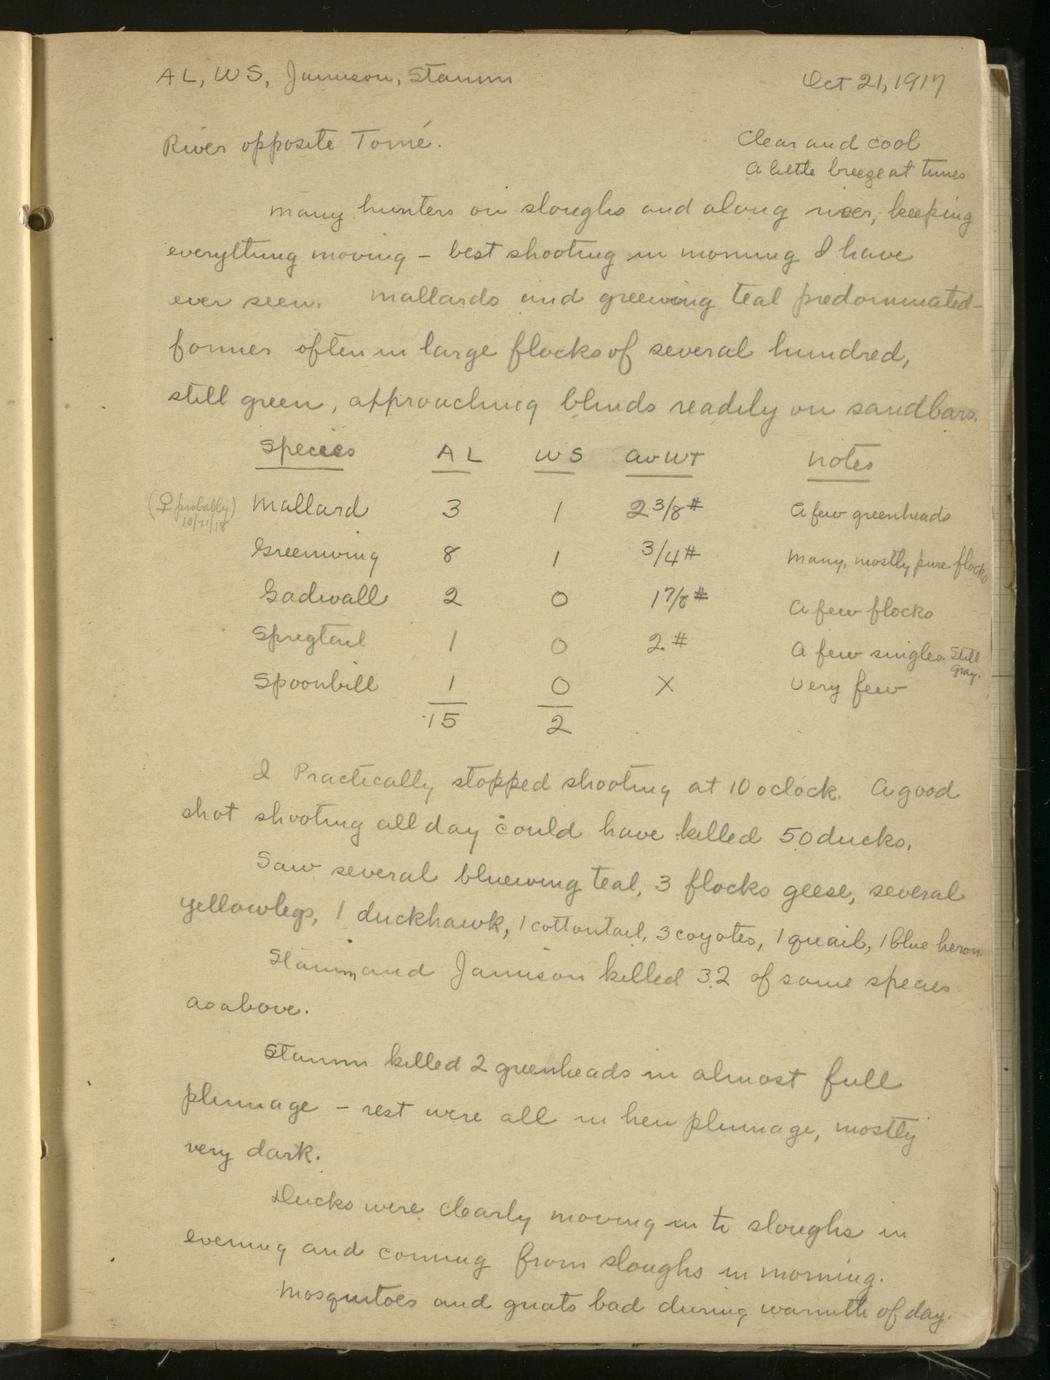 AL, WS, Jamison, Stamm Oct 21, 1917
River opposite Tomé. Clear and cool
A little breeze at times
Many hunters on sloughs and along river, keeping
everything moving – best shooting in morning I have
ever seen. Mallards and greenwing teal predominated –
former often in large flocks of several hundred,
still green, approaching blinds readily on sandbars.
Species AL WS Av WT Notes
(♀ probably) 10/21/18 Mallard 3 1 2 3/8 # A few greenheads
Greenwing 8 1 3/4 # Many, mostly pure flocks
Gadwall 2 0 1 7/8 # A few flocks
Sprigtail 1 0 2 # A few singles. Still gray.
Spoonbill 1 0 X Very few
15 2
I Practically stopped shooting at 10 oclock. A good
shot shooting all day could have killed 50 ducks.
Saw several bluewing teal, 3 flocks geese, several
yellowlegs, 1 duckhawk, 1 cottontail, 3 coyotes, 1 quail, 1 blue heron
Stamm and Jamison killed 32 of same species
as above.
Stamm killed 2 greenheads in almost full
plumage – rest were all in hen plumage, mostly
very dark.
Ducks were clearly moving in to sloughs in
evening and coming from sloughs in morning.
Mosquitoes and gnats bad during warmth of day.